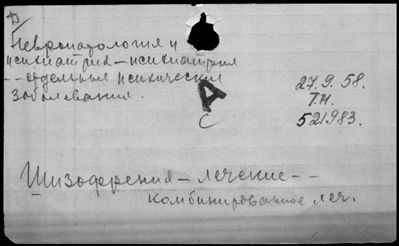 Невропатология и
психиатрия – психиатрия
-- отдельные психические
заболевания.
А
С
27.9.58.
Т.Н.
521983.
Шизофрения – лечение --
комбинированное леч.